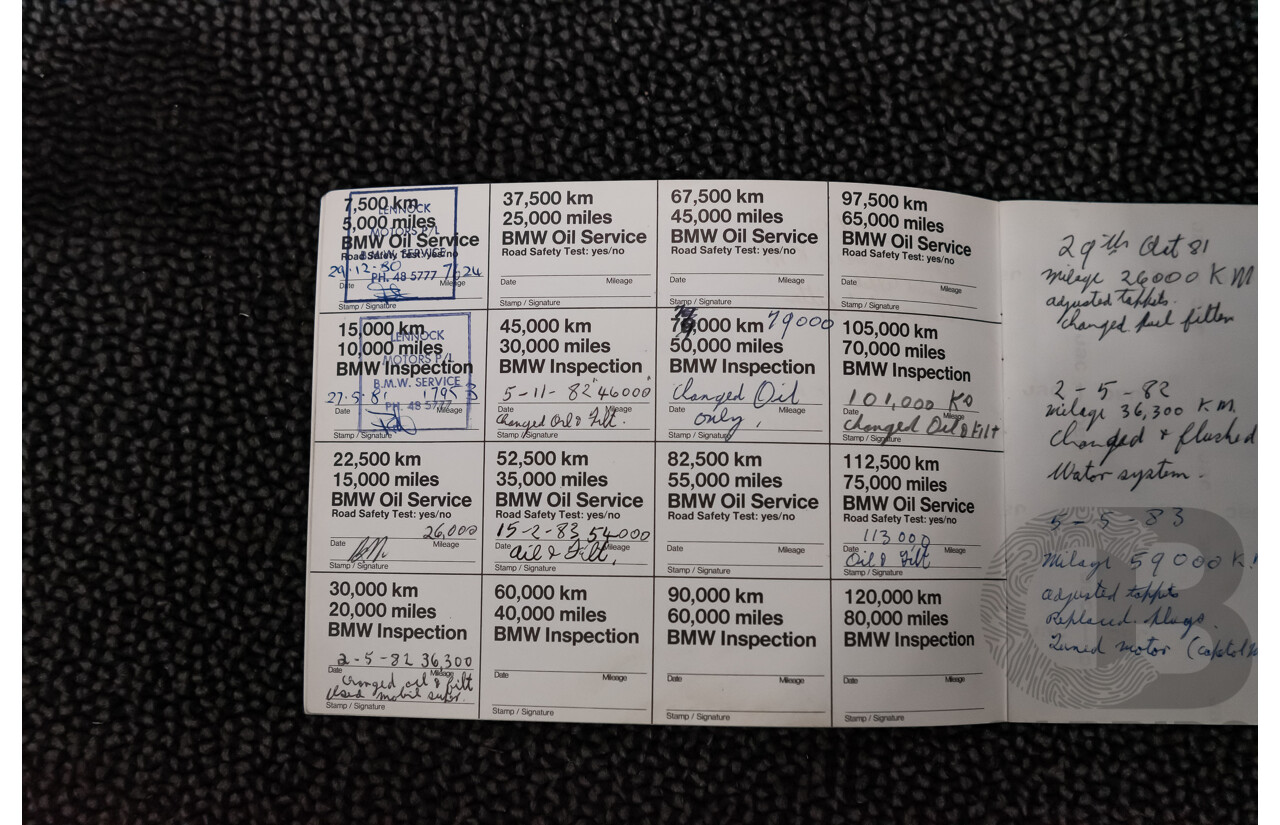 7,500 km
5,000 miles
BMW Oil Service
Road Safety Test: yes/no
LENNOCK
MOTORS P/L
B.M.W. SERVICE
PH. 48 5777
29.12.80 7624
Date Mileage
Stamp / Signature
15,000 km
10,000 miles
BMW Inspection
LENNOCK
MOTORS P/L
B.M.W. SERVICE
PH. 48 5777
27.5.81
Date Mileage
Stamp / Signature
22,500 km
15,000 miles
BMW Oil Service
Road Safety Test: yes/no
26,000
Date Mileage
Stamp / Signature
30,000 km
20,000 miles
BMW Inspection
2-5-82 36,300
Date Mileage
Changed oil & filt
Used mobil supr.
Stamp / Signature
37,500 km
25,000 miles
BMW Oil Service
Road Safety Test: yes/no
Date Mileage
Stamp / Signature
45,000 km
30,000 miles
BMW Inspection
5-11-82 "46000"
Date Mileage
Changed Oil & Filt.
Stamp / Signature
52,500 km
35,000 miles
BMW Oil Service
Road Safety Test: yes/no
15-2-83 54000
Date Mileage
Oil & Filt,
Stamp / Signature
60,000 km
40,000 miles
BMW Inspection
Date Mileage
Stamp / Signature
67,500 km
45,000 miles
BMW Oil Service
Road Safety Test: yes/no
Date Mileage
Stamp / Signature
79,000 km 79000
50,000 miles
BMW Inspection
Changed Oil
Date Mileage
only,
Stamp / Signature
82,500 km
55,000 miles
BMW Oil Service
Road Safety Test: yes/no
Date Mileage
Stamp / Signature
90,000 km
60,000 miles
BMW Inspection
Date Mileage
Stamp / Signature
97,500 km
65,000 miles
BMW Oil Service
Road Safety Test: yes/no
Date Mileage
Stamp / Signature
105,000 km
70,000 miles
BMW Inspection
101,000 Ks
Date Mileage
Changed Oil & Filt
Stamp / Signature
112,500 km
75,000 miles
BMW Oil Service
Road Safety Test: yes/no
113000
Date Mileage
Oil & Filt
Stamp / Signature
120,000 km
80,000 miles
BMW Inspection
Date Mileage
Stamp / Signature
29th Oct 81
milage 26000 KM
adjusted tappets.
Changed fuel filter
2-5-82
milage 36,300 KM.
Changed & flushed
Water system.
5-5-83
Milage 59000 K
adjusted tappets
Replaced plugs.
Tuned motor